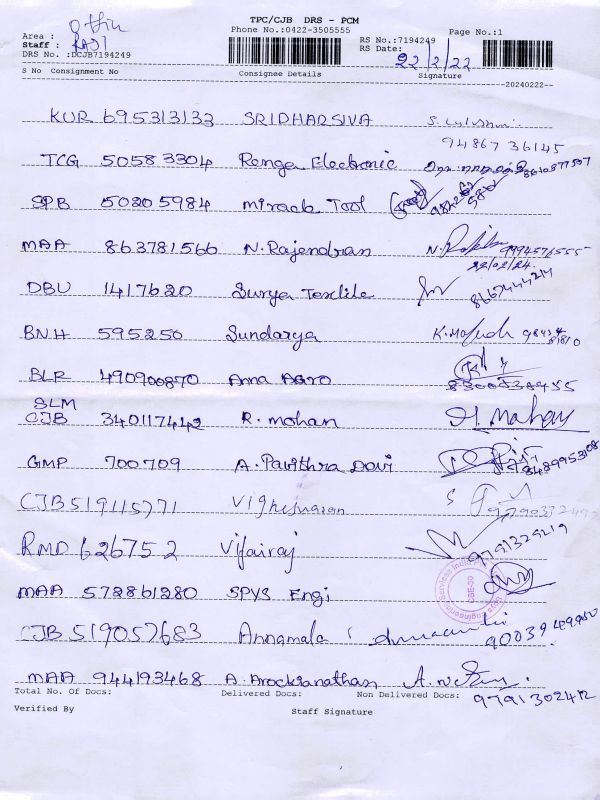 TPC/CJB DRS - PCM
Phone No.:0422-3505555
Page No.:1
Area : Office
Staff : RAJI
DRS No. :DCJB7194249
RS No.:7194249
RS Date: 22/2/22
S No Consignment No Consignee Details Signature
20240222--
KUR 695313133 SRIDHARSIVA
94867 36145
TCG 50583304 Renga Electronic
SPB 50205984 Miraab Tool
MAA 863781566 N.Rajendran 9994576555
22/02/24.
DBU 1417620 Surya Textile 8667444214
BNH 595250 Sundarya
BLR 490900870 Anna Agro
SLM
CJB 340117442 R. mohan
GMP 700709 A. Pavithra Devi
CJB 519115771 Vighesnaran
RMD 626752 Vijairaj 9791329219
MAA 572861280 SPYS Engi
CBE-30
CJB 519057683 Annamala
MAA 944193468 A. Arockianathan
Total No. Of Docs: Delivered Docs: Non Delivered Docs:
9791302412
Verified By Staff Signature